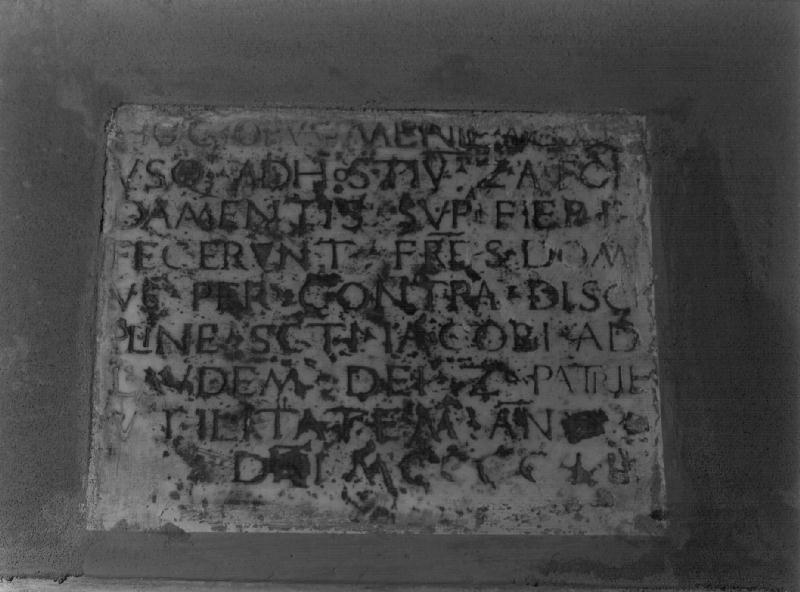 HOC OPVS MENIE
VSQ ADHOSTIV Z A FO
DAMENTIS SVP FIERI
FECERVNT FRES DOM
VS PER CONTRA DISCI
PLINE SCTI IACOBI AD
LAVDEM DEI Z PATRIE
VTILITATEM AN
DNI MCCCC